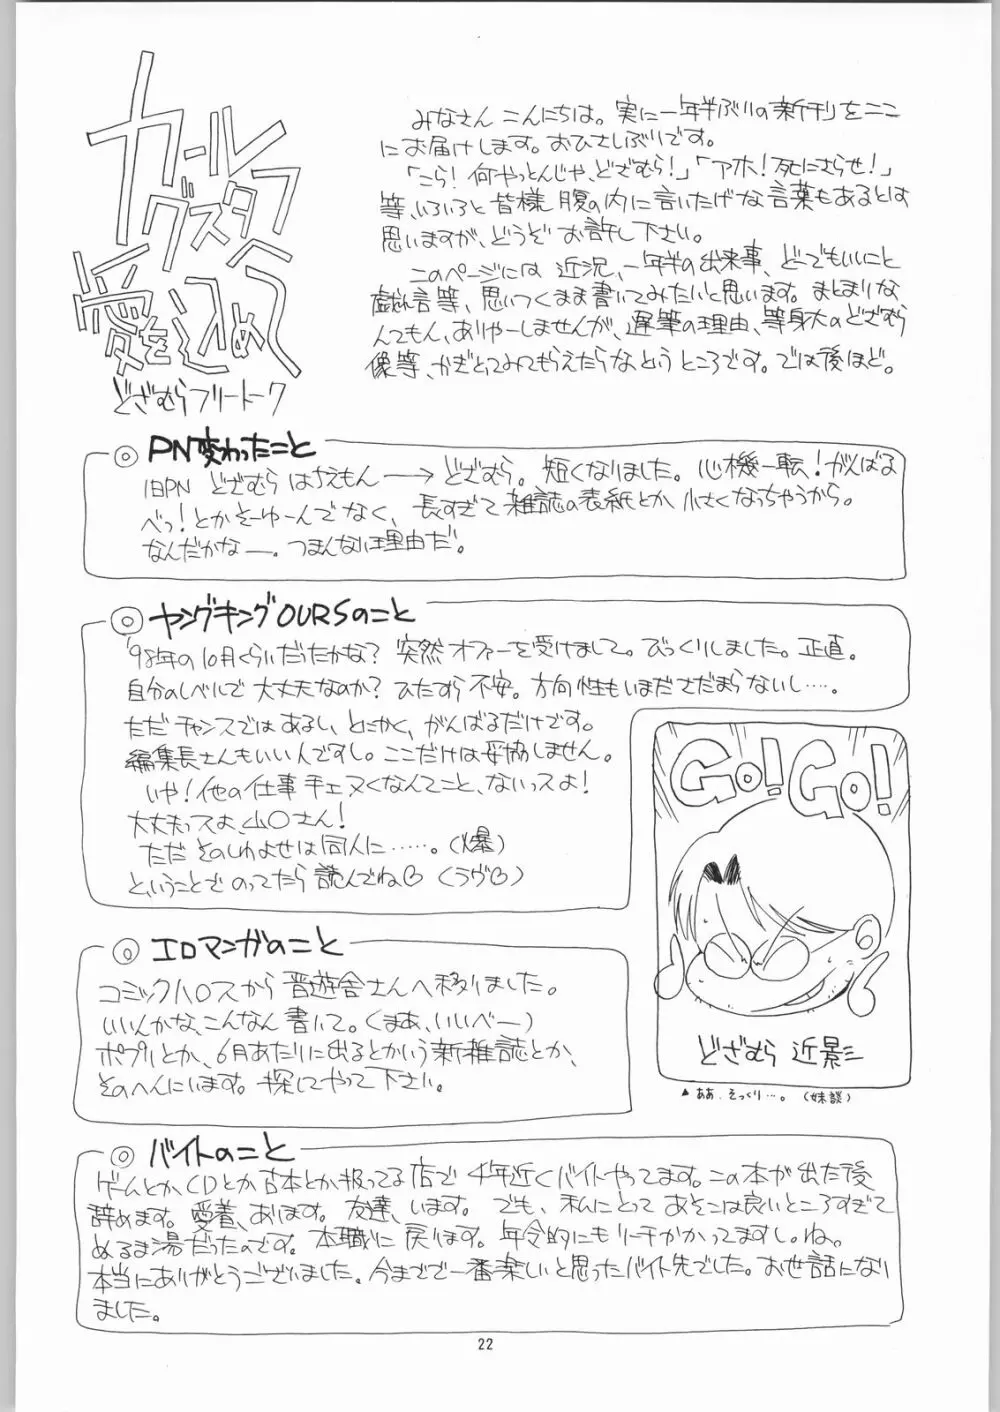 カール
グスタフへ
愛を込めて
どざむらフリートーク
みなさん こんにちは。実に一年半ぶりの新刊をここ
にお届けします。おひさしぶりです。
「こら！何やっとんじゃ、どざむら！」「アホ！死にさらせ！」
等、いろいろと皆様 腹の内に言いたげな言葉もあるとは
思いますが、どうぞ お許し下さい。
このページには 近況、一年半の出来事、どーでもいいこと
戯れ言等、思いつくまま書いてみたいと思います。まとまりな
んてもん、ありゃーしませんが、遅筆の理由、等身大のどざむら
像等、かぎとってみてもらえたらなというところです。では後ほど。
◎ PN変わったこと
旧PN どざむらはちえもん ──→ どざむら。短くなりました。心機一転！がんばる
べっ！とかそーゆーんでなく、長すぎて雑誌の表紙とか小さくなっちゃうから。
なんだかなー。つまんない理由だ。
◎ ヤングキングOURSのこと
'98年の10月くらいだったかな？突然オファーを受けまして。びっくりしました。正直。
自分のレベルで大丈夫なのか？ひたすら不安。方向性もいまださだまらないし‥‥。
ただチャンスではあるし、とにかく、がんばるだけです。
編集長さんもいい人ですし。ここだけは妥協しません。
いや！他の仕事手ェヌくなんてこと、ないっスよ！
大丈夫っスよ、山〇さん！
ただ そのしわよせは同人に‥‥‥。（爆）
ということで のってたら読んでね♡（ラヴ♡）
Go! Go!
どざむら 近影
▲ああ、そっくり…。（妹談）
◎ エロマンガのこと
コミックハロスから晋遊舎さんへ移りました。
いいんかな、こんなん書いて。（まあ、いいべー）
ポプリとか、6月あたりに出るとかいう新雑誌とか、
そのへんにいます。探してやって下さい。
◎ バイトのこと
ゲームとかCDとか古本とか扱ってる店で4年近くバイトやってます。この本が出た後
辞めます。愛着、あります。友達、います。でも、私にとってあそこは良いところすぎて
ぬるま湯だったのです。本職に戻ります。年令的にもリーチかかってますし。ね。
本当にありがとうございました。今までで一番楽しいと思ったバイト先でした。お世話になり
ました。
22